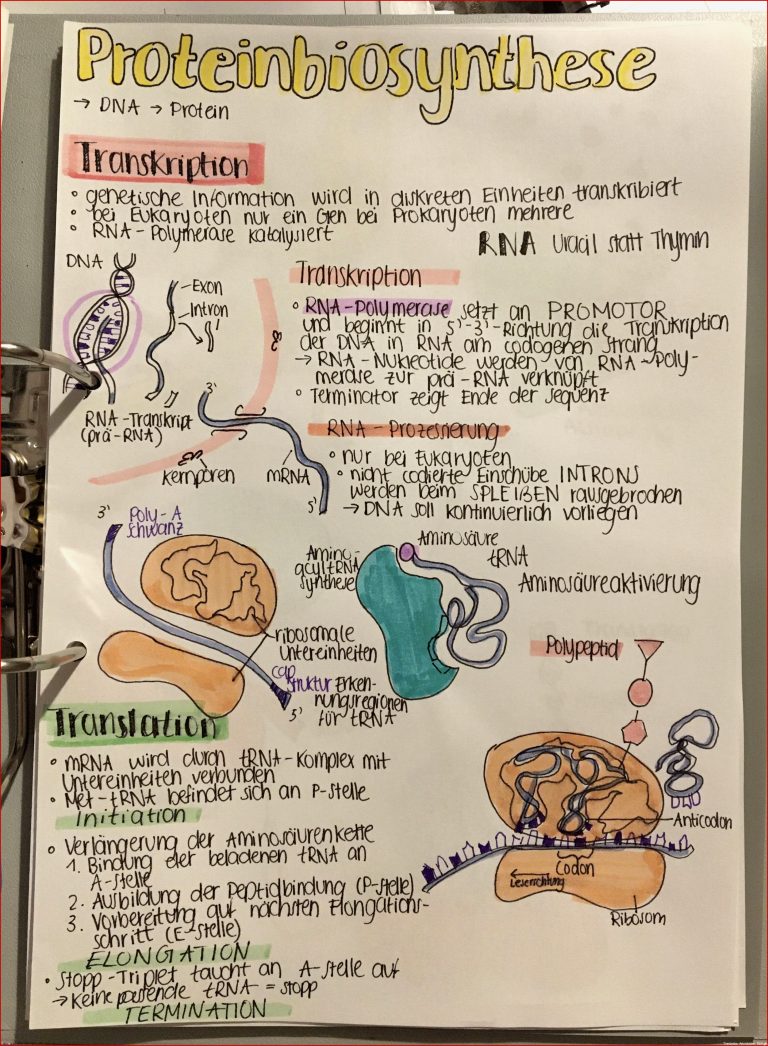 Proteinbiosynthese
→ DNA → Protein
Transkription
• genetische Information wird in diskreten Einheiten transkribiert
• bei Eukaryoten nur ein Gen bei Prokaryoten mehrere
• RNA-Polymerase katalysiert
RNA Uracil statt Thymin
DNA
Exon
Intron
RNA-Transkript
(prä-RNA)
Transkription
• RNA-Polymerase setzt an PROMOTOR
und beginnt in 5'-3'-Richtung die Transkription
der DNA in RNA am codogenen Strang
→ RNA-Nukleotide werden von RNA-Poly-
merase zur prä-RNA verknüpft
• Terminator zeigt Ende der Sequenz
3'
Kernporen
mRNA
5'
RNA-Prozessierung
• nur bei Eukaryoten
• nicht codierte Einschübe INTRONS
werden beim SPLEIßEN rausgebrochen
→ DNA soll kontinuierlich vorliegen
3'
Poly-A
Schwanz
ribosomale
Untereinheiten
cap
Struktur Erken-
nungsregionen
für tRNA
5'
Amino-
acyltRNA
synthese
Aminosäure
tRNA
Aminosäureaktivierung
Polypeptid
Anticodon
Codon
Leserichtung
Ribosom
Translation
• mRNA wird durch tRNA-Komplex mit
Untereinheiten verbunden
• Met-tRNA befindet sich an P-Stelle
Initiation
• Verlängerung der Aminosäurenkette
1. Bindung der beladenen tRNA an
A-Stelle
2. Ausbildung der Peptidbindung (P-Stelle)
3. Vorbereitung auf nächsten Elongations-
schritt (E-Stelle)
ELONGATION
• Stopp-Triplet taucht an A-Stelle auf
→ Keine passende tRNA = stopp
TERMINATION